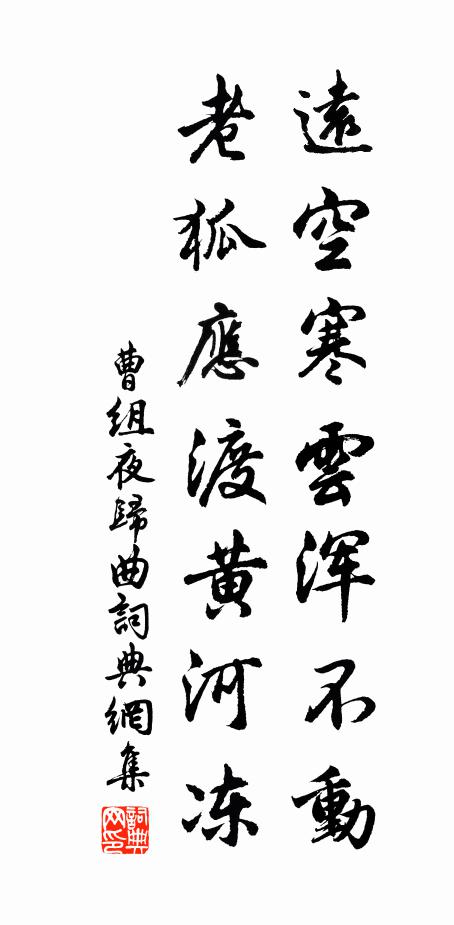 遠空寒雲渾不動
老狐應渡黃河冻
曹組夜歸曲詞典網集
詞典网印